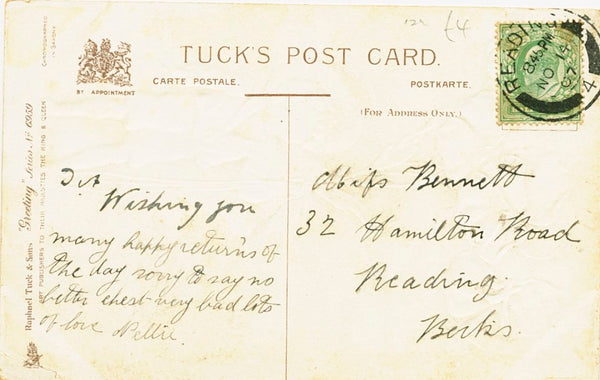 £4
TUCK'S POST CARD.
CARTE POSTALE.
POSTKARTE.
BY APPOINTMENT
(FOR ADDRESS ONLY.)
READING
8 45 PM
NO 14
07
4
CHROMOGRAPHED
IN SAXONY
Raphael Tuck & Sons "Greeting" Series No
ART PUBLISHERS TO THEIR MAJESTIES THE KING & QUEEN
Wishing you
many happy returns of
the day sorry to say no
better chest very bad lots
of love Nellie
Miss Bennett
32 Hamilton Road
Reading.
Berks.